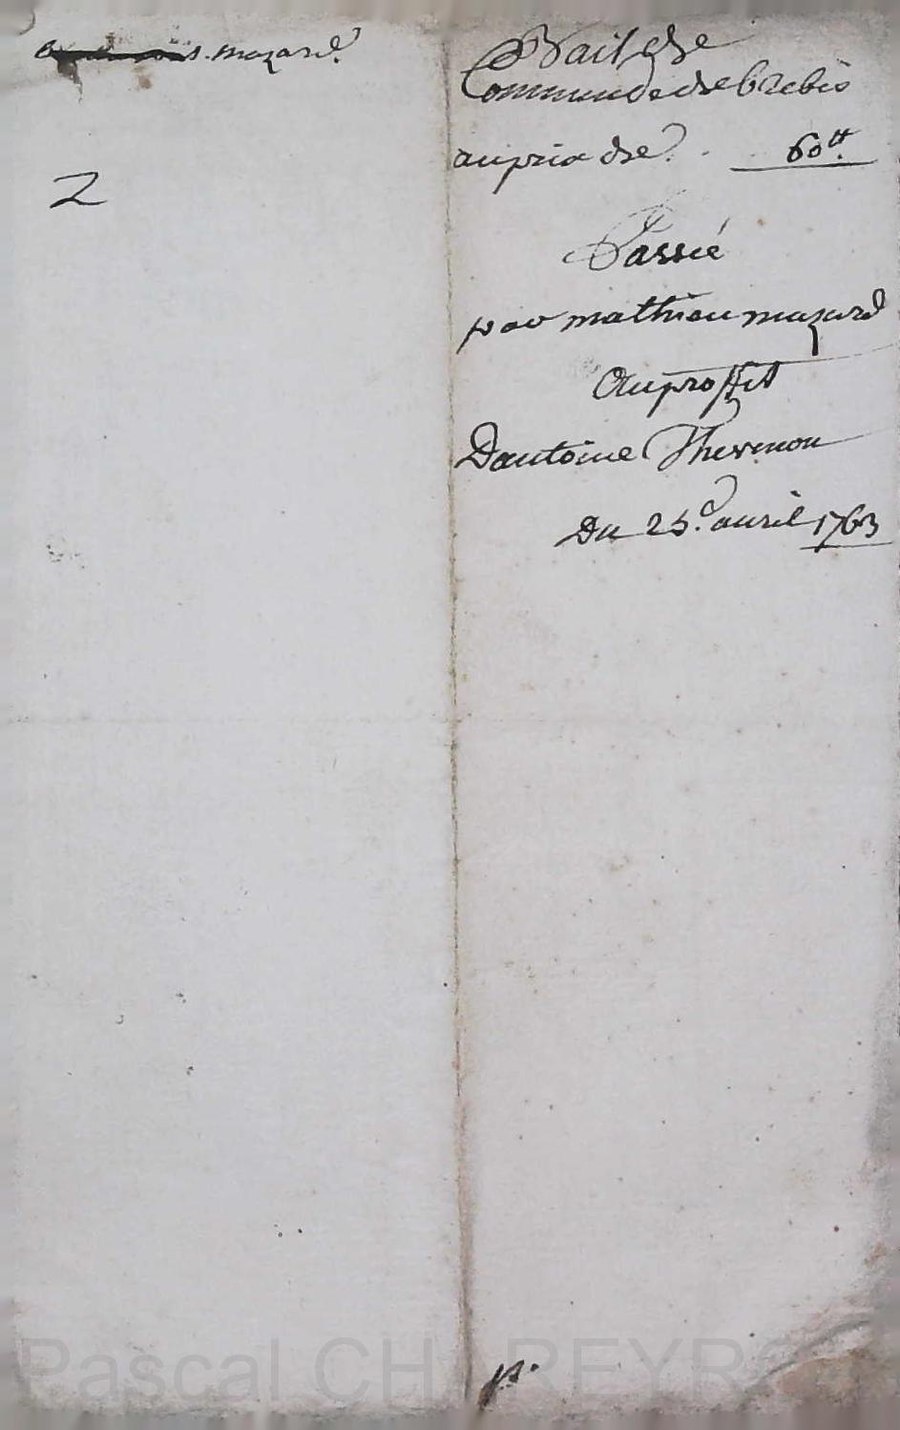 mazard
2
Bail de
Commande de brebis
au prix de . . 60tt
Passé
par mathieu mazard
Au proffit
Dantoine Thermon
Du 25e. auril 1763
Pascal CHAREYRO